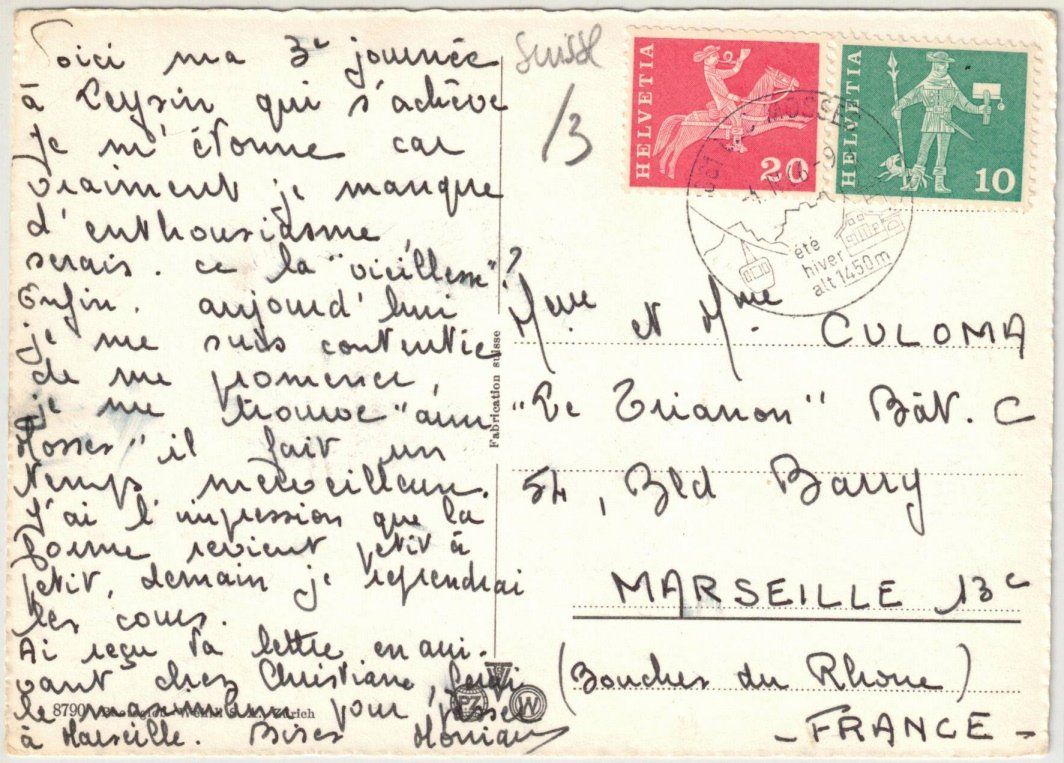 Voici ma 3e journée
à Leysin qui s'achève
je m'étonne car
vraiment je manque
d'enthousiasme
serais. ce la "vieillesse"?
Enfin. aujourd'hui
je me suis contentée
de me promener,
je me trouve "aux
Mosses" il fait un
temps merveilleux.
J'ai l'impression que la
forme revient petit à
petit, demain je reprendrai
les cours.
Ai reçu ta lettre en arri.
vant chez Christiane,
le maximum pour passer
à Marseille. Bises Monique
8790
Zürich
Fabrication suisse
PZ
W
Suisse
/3
HELVETIA
20
HELVETIA
10
MOSSES
été
hiver
alt 1450m
Meur et Mme CULOMA
"Le Trianon" Bât. C
54, Bld Barry
MARSEILLE 13e
(Bouches du Rhone)
- FRANCE -